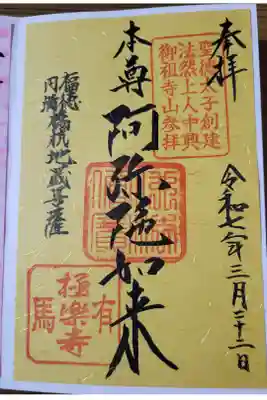 奉拝
聖徳太子創建
法然上人中興
御祖寺山参拝
令和七年三月二十二日
本尊 阿弥陀如来
福徳
円満
地蔵菩薩
有
極樂寺
馬